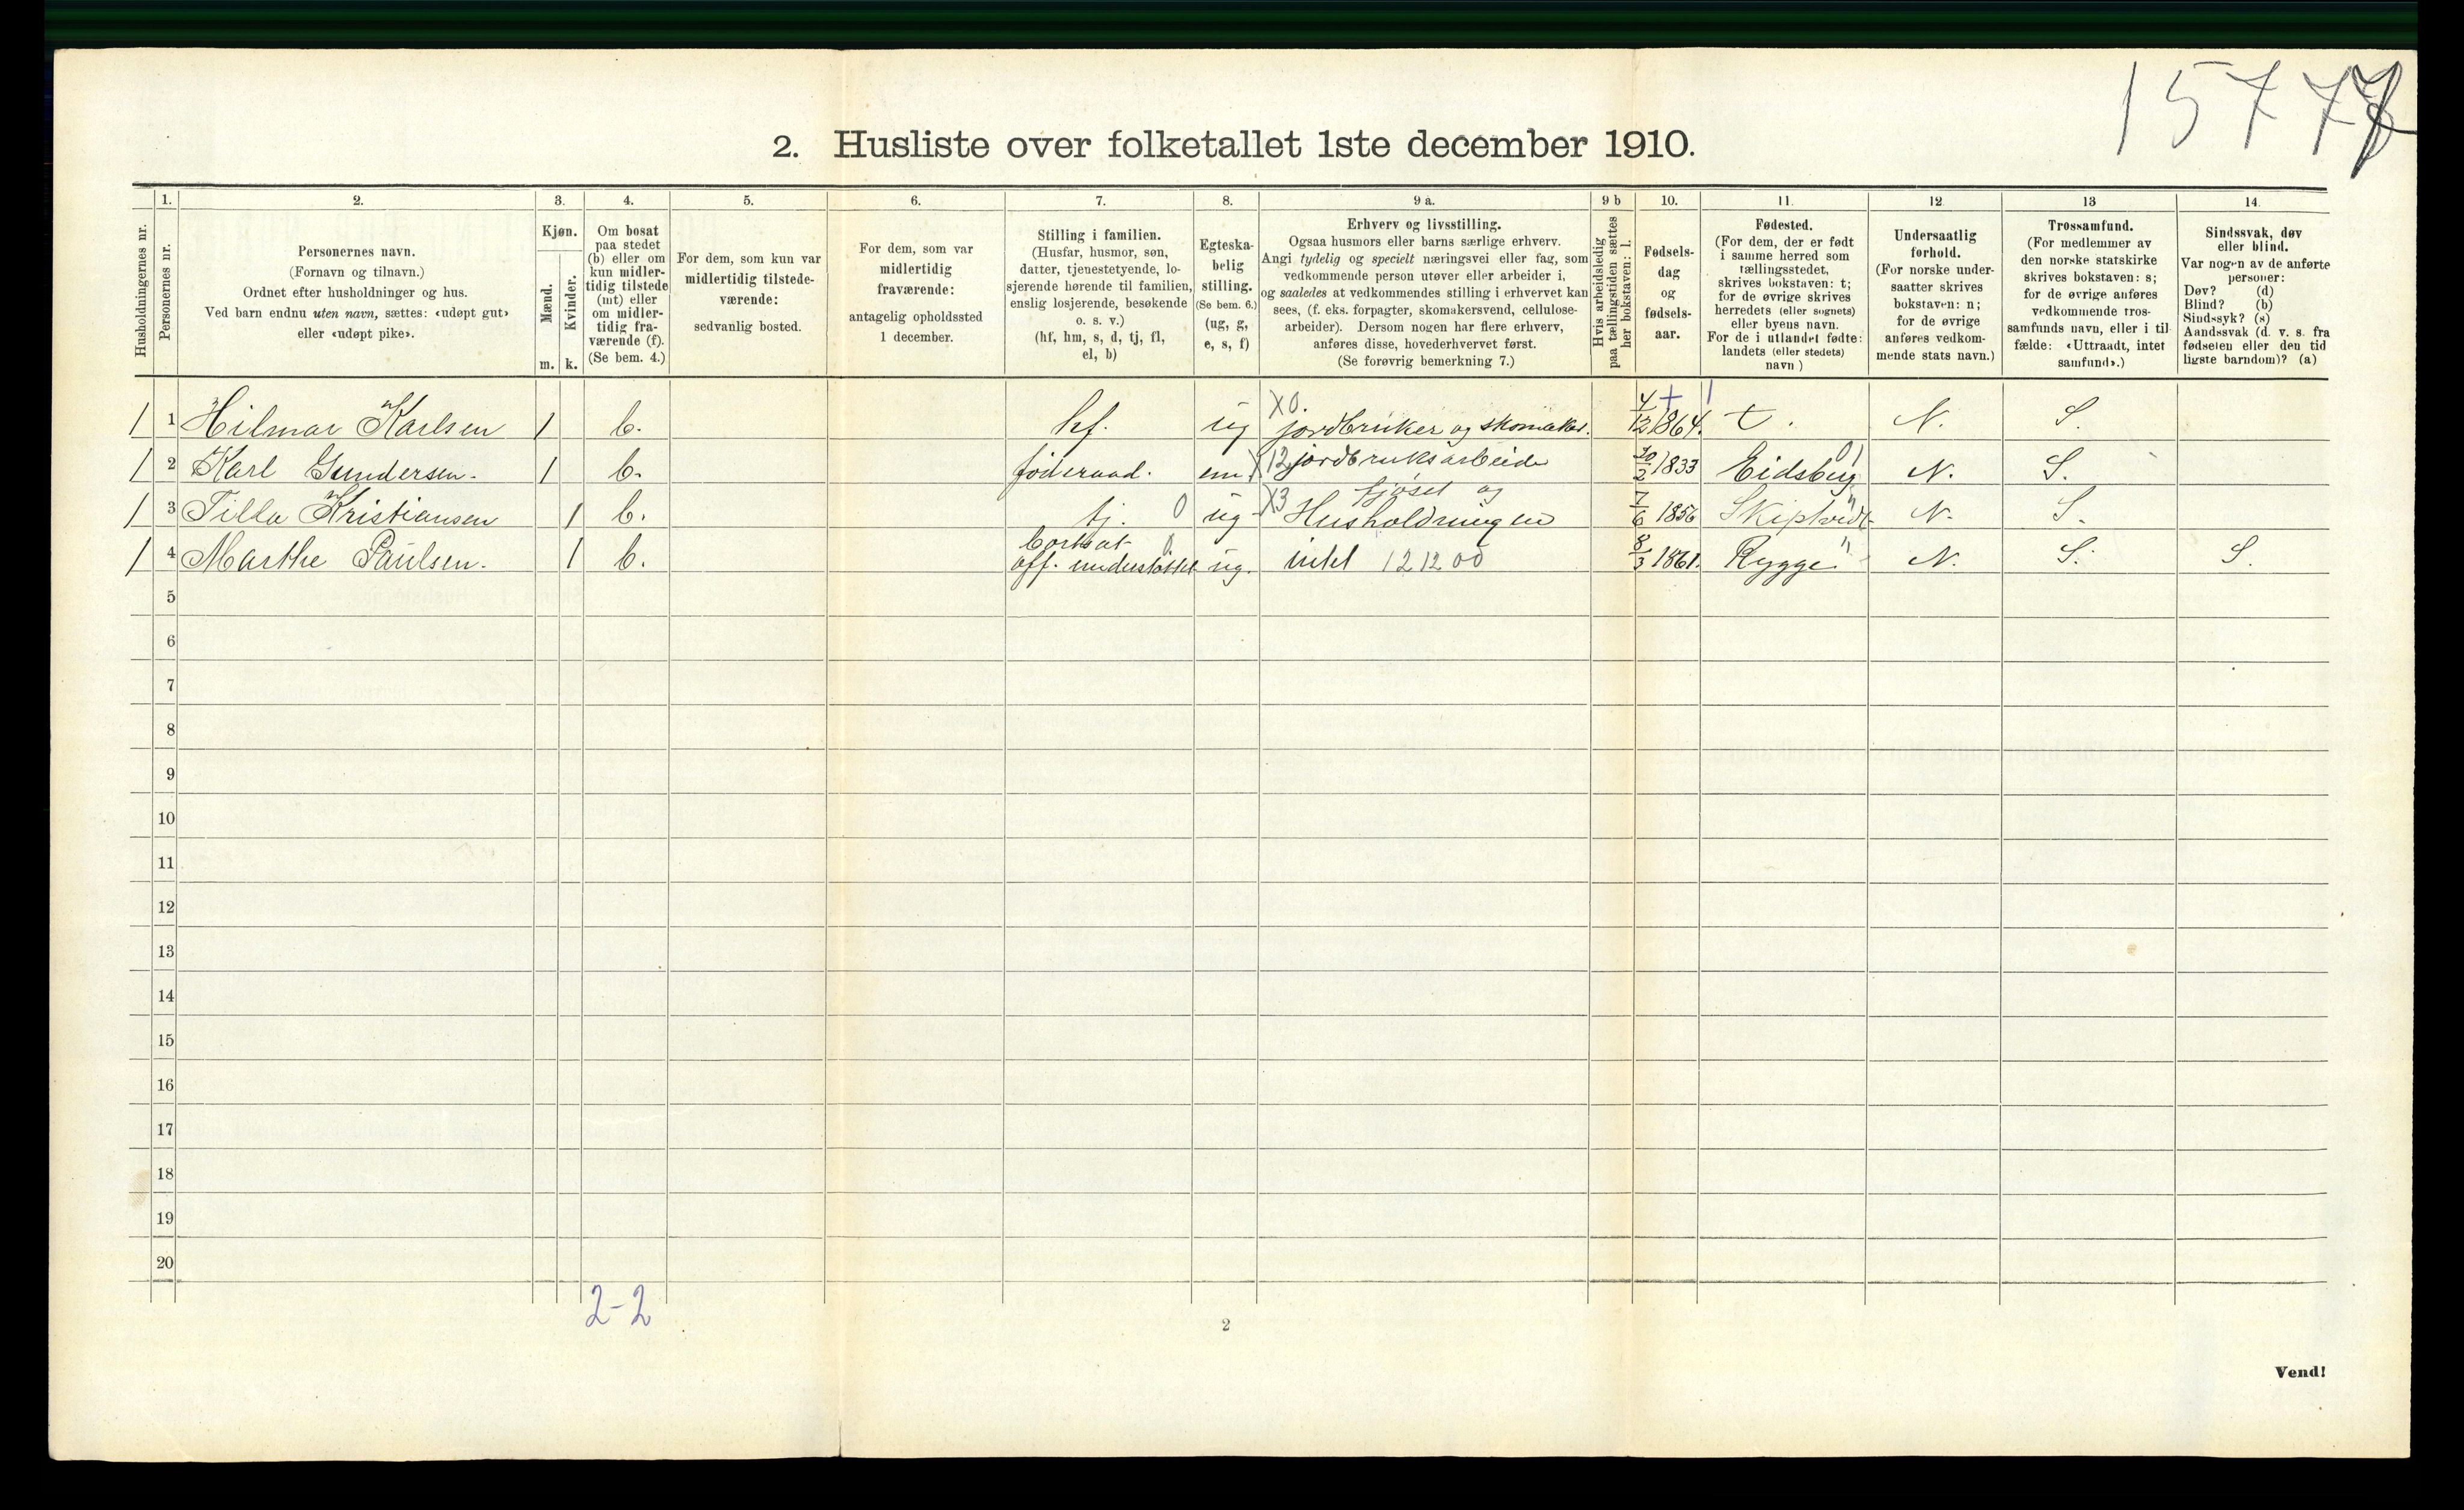 1577
2. Husliste over folketallet 1ste december 1910.
Husholdningernes nr.
1.
Personernes nr.
2.
Personernes navn.
(Fornavn og tilnavn.)
Ordnet efter husholdninger og hus.
Ved barn endnu uten navn, sættes: «udøpt gut»
eller «udøpt pike».
3.
Kjøn.
Mænd.
m.
Kvinder.
k.
4.
Om bosat
paa stedet
(b) eller om
kun midler-
tidig tilstede
(mt) eller
om midler-
tidig fra-
værende (f).
(Se bem. 4.)
5.
For dem, som kun var
midlertidig tilstede-
værende:
sedvanlig bosted.
6.
For dem, som var
midlertidig
fraværende:
antagelig opholdssted
1 december.
7.
Stilling i familien.
(Husfar, husmor, søn,
datter, tjenestetyende, lo-
sjerende hørende til familien,
enslig losjerende, besøkende
o. s. v.)
(hf, hm, s, d, tj, fl,
el, b)
8.
Egteska-
belig
stilling.
(Se bem. 6.)
(ug, g,
e, s, f)
9 a.
Erhverv og livsstilling.
Ogsaa husmors eller barns særlige erhverv.
Angi tydelig og specielt næringsvei eller fag, som
vedkommende person utøver eller arbeider i,
og saaledes at vedkommendes stilling i erhvervet kan
sees, (f. eks. forpagter, skomakersvend, cellulose-
arbeider). Dersom nogen har flere erhverv,
anføres disse, hovederhvervet først.
(Se forøvrig bemerkning 7.)
9 b
Hvis arbeidsledig
paa tællingstiden sættes
her bokstaven: l.
10.
Fødsels-
dag
og
fødsels-
aar.
11.
Fødested.
(For dem, der er født
i samme herred som
tællingsstedet,
skrives bokstaven: t;
for de øvrige skrives
herredets (eller sognets)
eller byens navn.
For de i utlandet fødte:
landets (eller stedets)
navn)
12
Undersaatlig
forhold.
(For norske under-
saatter skrives
bokstaven: n;
for de øvrige
anføres vedkom-
mende stats navn.)
13
Trossamfund.
(For medlemmer av
den norske statskirke
skrives bokstaven: s;
for de øvrige anføres
vedkommende tros-
samfunds navn, eller i til
fælde: «Uttraadt, intet
samfund».)
14.
Sindssvak, døv
eller blind.
Var nogen av de anførte
personer:
Døv? (d)
Blind? (b)
Sindssyk? (s)
Aandssvak (d. v. s. fra
fødselen eller den tid
ligste barndom)? (a)
X0.
1 1 Hilmar Karlsen 1 b. hf. ug jordbruker og skomaker. 4/12 1864. t. N. S.
1 2 Karl Gundersen. 1 b. føderaad. em X12 jordbruksarbeide 20/2 1833 Eidsberg 01 N. S.
fjøset og
1 3 Tilla Kristiansen 1 b. tj. 0 ug X3 Husholdningen 7/6 1856 Skiptvedt " N. S.
bortsat 0
1 4 Marthe Paulsen. 1 b. off. understøttet ug. intet 121200 8/3 1861. Rygge " N. S. S.
5
6
7
8
9
10
11
12
13
14
15
16
17
18
19
20
2-2
2
Vend!